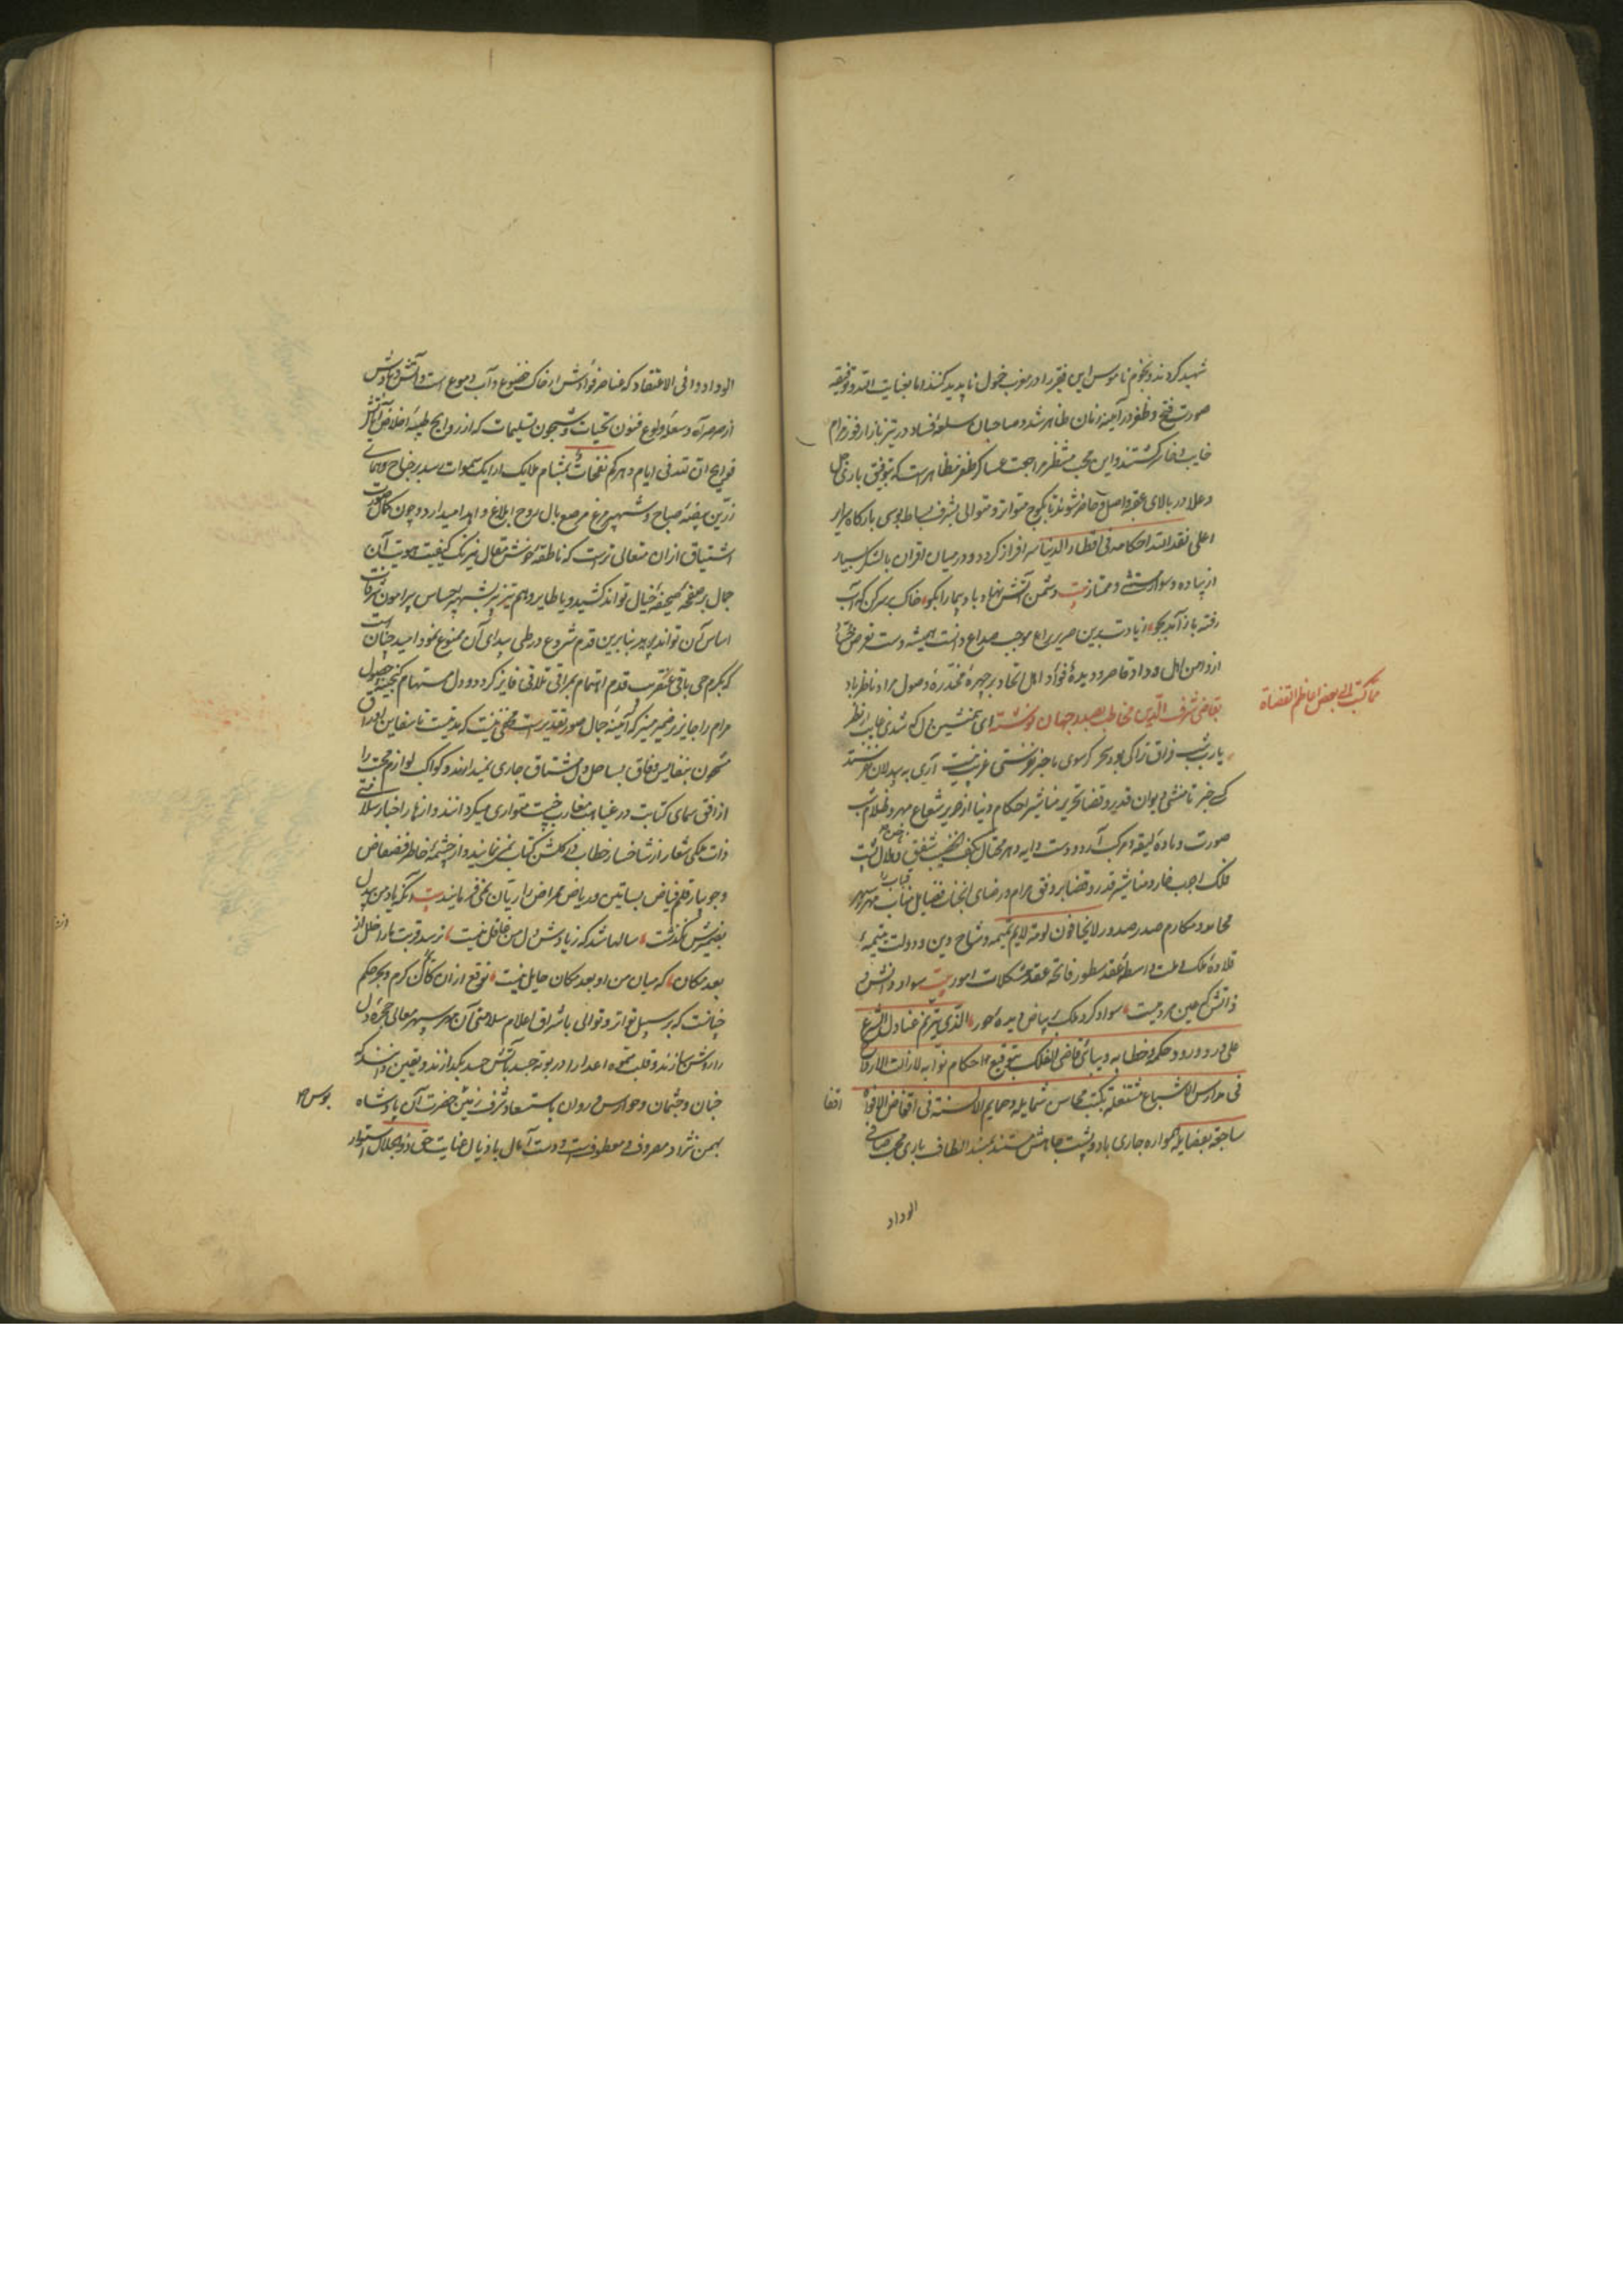 شهید کردند و نجوم ناموس این فقیر را در مغرب خمول ناپدید کنند اما بعنایت الله و توفیقه
صورت فتح و ظفر در آیینه زمان ظاهر شد و صاحبان سلعه فساد در تیز بازار فوز مرام
خایب و خاسر گشتند و این محب منتظر مراجعت عساکر ظفر مظاهرست که بتوفیق باری جل
و علا در بالای عقبه واصل و حاضر شوند تا بکوچ متواتر و متوالی بشرف بساط بوسی بارگاه سریر
اعلی نفذ الله احکامه فی اقطار الدنیا سرافراز گردد و در میان اقران بالشکر بسیار
از پیاده و سوار مستثنی و ممتاز بیت دشمن آتش نهاد باد پیما را بگو خاک بر سر کن که آب
رفته باز آمد بجو زیادت بدین صریر یراع موجب صداع دانست همیشه دست تعرض
از دامن اهل وداد قاصر و دیده فؤاد اهل اتحاد بر چهره مخدره وصول مراد ناظر باد
مما کتب الی بعض اعاظم القضاة
بقاضی شرف الدین مخاطب بصدر جهان نوشته ای همنشین دل که شدی غایب از نظر
یا رب شب فراق ترا کی بود سحر گر سوی ما خبر نفرستی غریب نیست آری به بیدلان نفرستند
کس خبر تا منشی دیوان قدیر و قضا تحریر مناشیر احکام دنیا از حریر شعاع مهر و ظلام شب
صورت و ماده لیقه و مرکب آرد و دست دایه دهر
فلک
محامد و مکارم صدر صدور لایخافون لومة لایم تمیمه و شاح دین و دولت یتیمه
قلاده ملک و ملت واسطه عقد سطور فاتحه عقد مشکلات امور بیت سواد دانش و
ذاتش که عین مردمیست سواد کرد ملک بیاض دیده حور الذی یترنم عنادل الشرع
علی ورد ورود حکمه و خطابه و یباهی قاضی الفلک بتوقیع احکام نوابه لازالت الارواح
فی مدارس الاشباح مشتغلة بکتب محاسن شمایله و حمایم الالسنة فی اقفاص الافواه
اقفا
ساجعة بفضایله همواره جاری باد و پشت جاهش مستند بمسند الطاف باری محب صافی
الوداد
الوداد وافی الاعتقاد که عناصر فوادش از خاک خضوع و آب دموع است و آتش و بادش
از صرصر آه و شعله ولوع فنون تحیات و شجون تسلیمات که از روایح طیبه اخلاص آثار
فوایح ان لله فی ایام دهرکم نفحات بمشام ملایک ارایک سموات رسد بر جناح همای
زرین بیضه صباح و شهپر مرغ مرصع بال روح ابلاغ و اهدا میدارد و چون کمال صورت
اشتیاق ازان متعالی ترست که ناطقه خوش مقال نیرنگ کیفیت هویت آن
جمال بر صفحه صحیفه خیال تواند کشید و یا طایر وهم تیز پر بشهپر احساس پیرامون شرفات
اساس آن تواند پرید بنابرین قدم شروع در طی بیدای آن ممنوع نمود امید چنان است
که بکرم حی باقی عنقریب قدم اهتمام بمراقی تلاقی فایز گردد و دل مستهام گنجینه حصول
مرام را جایز بر ضمیر منیر که آیینه جمال صور تقدیرست مخفی نیست که مدتیست تا سفاین اوراق
مشحون بنفایس وفاق بساحل دل مشتاق جاری نمیدارند و کواکب لوازم محبت را
از افق سمای کتابت در غیاهب مغارب خیبت متواری میگردانند و ازهار اخبار سلامتی
ذات ملکی شعار از شاخسار خطاب در گلشن کتاب نمی نمایند و از چشمه خاطر فضفاض
و جویبار قلم فیاض بساتین و ریاض اغراض را ریان نمی فرمایند بیت آنکه یاد من بیدل
بضمیرش نگذشت سالها شد که ز یادش دل من غافل نیست نرسد قربت ما را خلل از
بعد مکان که میان من و او بعد مکان حایل نیست توقع ازان کان کرم و بحر حکم
چنانست که بر سبیل تواتر و توالی باشراق اعلام سلامتی آن مهر سپهر معالی حجره دل
را روشن سازند و قلب مموه اعدا را در بوته جسد بآتش حسد بگدازند و یقین دانند که
جنان و جثمان و حواس و روان باستسعاد شرف زمین حضرت آن پادشاه
بوس
بهمن نژاد مصروف و معطوف است و دست آمال باذیال عنایت حق ذوالجلال استوار